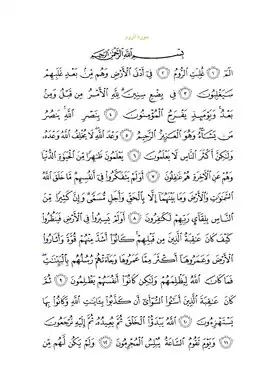 سورة الروم
بِسْمِ اللَّهِ الرَّحْمَٰنِ الرَّحِيمِ
الٓمٓ ١ غُلِبَتِ الرُّومُ ٢ فِي أَدْنَى الْأَرْضِ وَهُم مِّن بَعْدِ غَلَبِهِمْ
سَيَغْلِبُونَ ٣ فِي بِضْعِ سِنِينَ لِلَّهِ الْأَمْرُ مِن قَبْلُ وَمِن
بَعْدُ وَيَوْمَئِذٍ يَفْرَحُ الْمُؤْمِنُونَ ٤ بِنَصْرِ اللَّهِ يَنصُرُ
مَن يَشَاءُ وَهُوَ الْعَزِيزُ الرَّحِيمُ ٥ وَعْدَ اللَّهِ لَا يُخْلِفُ اللَّهُ وَعْدَهُ
وَلَٰكِنَّ أَكْثَرَ النَّاسِ لَا يَعْلَمُونَ ٦ يَعْلَمُونَ ظَاهِرًا مِّنَ الْحَيَوٰةِ الدُّنْيَا
وَهُمْ عَنِ الْآخِرَةِ هُمْ غَافِلُونَ ٧ أَوَلَمْ يَتَفَكَّرُوا فِي أَنفُسِهِم مَّا خَلَقَ اللَّهُ
السَّمَٰوَٰتِ وَالْأَرْضَ وَمَا بَيْنَهُمَا إِلَّا بِالْحَقِّ وَأَجَلٍ مُّسَمًّى وَإِنَّ كَثِيرًا مِّنَ
النَّاسِ بِلِقَاءِ رَبِّهِمْ لَكَافِرُونَ ٨ أَوَلَمْ يَسِيرُوا فِي الْأَرْضِ فَيَنظُرُوا
كَيْفَ كَانَ عَاقِبَةُ الَّذِينَ مِن قَبْلِهِمْ كَانُوا أَشَدَّ مِنْهُمْ قُوَّةً وَأَثَارُوا
الْأَرْضَ وَعَمَرُوهَا أَكْثَرَ مِمَّا عَمَرُوهَا وَجَاءَتْهُمْ رُسُلُهُم بِالْبَيِّنَٰتِ
فَمَا كَانَ اللَّهُ لِيَظْلِمَهُمْ وَلَٰكِن كَانُوا أَنفُسَهُمْ يَظْلِمُونَ ٩ ثُمَّ
كَانَ عَاقِبَةَ الَّذِينَ أَسَاءُوا السُّوأَىٰ أَن كَذَّبُوا بِآيَاتِ اللَّهِ وَكَانُوا بِهَا
يَسْتَهْزِءُونَ ١٠ اللَّهُ يَبْدَؤُا الْخَلْقَ ثُمَّ يُعِيدُهُ ثُمَّ إِلَيْهِ تُرْجَعُونَ
١١ وَيَوْمَ تَقُومُ السَّاعَةُ يُبْلِسُ الْمُجْرِمُونَ ١٢ وَلَمْ يَكُن لَّهُم